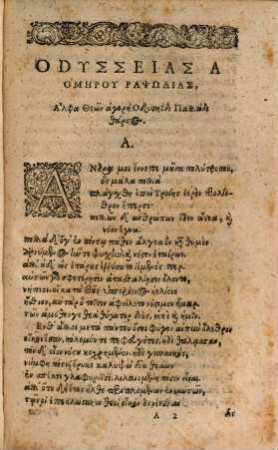 ΟΔΥΣΣΕΙΑΣ Α
ΟΜΗΡΟΥ ΡΑΨΩΔΙΑΣ,
Α.
ΑΝδρα μοι ἔννεπε μοῦσα πολύτροπον,
ὃς μάλα πολλὰ
πλάγχθη ἐπεὶ Τροίης ἱερὸν πτολίε-
θρον ἔπερσε·
πολλῶν δ' ἀνθρώπων ἴδεν ἄστεα, καὶ
νόον ἔγνω.
πολλὰ δ' ὅγ' ἐν πόντῳ πάθεν ἄλγεα ὃν κατὰ θυμόν
ἀρνύμενος ἥν τε ψυχὴν καὶ νόστον ἑταίρων.
ἀλλ' οὐδ' ὣς ἑτάρους ἐρρύσατο ἱέμενός περ.
αὐτῶν γὰρ σφετέρῃσιν ἀτασθαλίῃσιν ὄλοντο,
νήπιοι, οἳ κατὰ βοῦς ὑπερίονος ἠελίοιο
ἤσθιον, αὐτὰρ ὁ τοῖσιν ἀφείλετο νόστιμον ἦμαρ.
τῶν ἀμόθεν γε θεὰ θύγατερ διὸς, εἰπὲ καὶ ἡμῖν.
Ενθ' ἄλλοι μὲν πάντες ὅσοι φύγον αἰπὺν ὄλεθρον
οἴκοι ἔσαν, πόλεμόν τε πεφευγότες, ἠδὲ θάλασσαν,
τὸν δ' οἶον νόστου κεχρημένον, ἠδὲ γυναικὸς,
νύμφη πότνι' ἔρυκε καλυψὼ δῖα θεάων
ἐν σπέσσι γλαφυροῖσι, λιλαιομένη πόσιν εἶναι.
ἀλλ' ὅτε δὴ ἔτος ἦλθε περιπλομένων ἐνιαυτῶν,
τῷ οἱ ἐπεκλώσαντο θεοὶ οἶκόνδε νέεσθαι
A 2